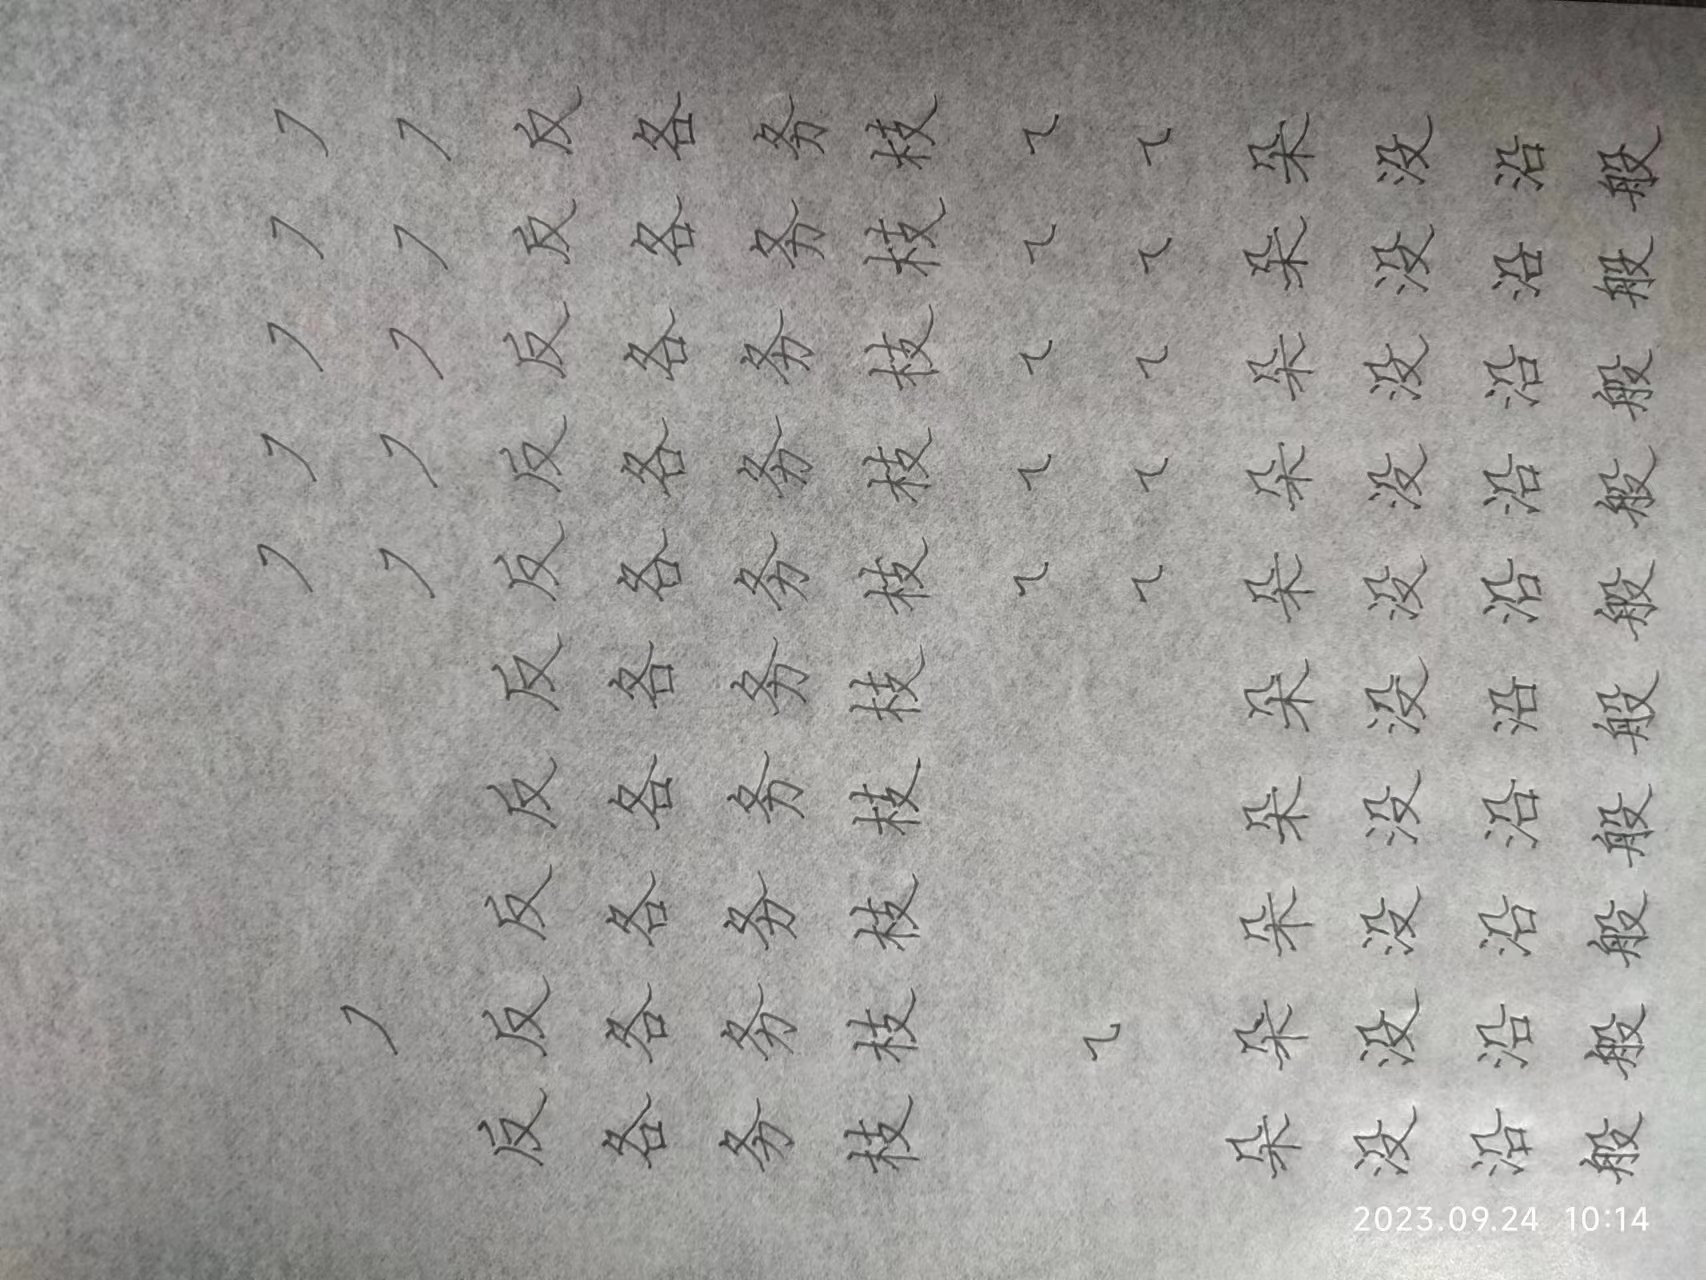 反反反反反反反反反反
各各各各各各各各各各
务务务务务务务务务务
枝枝枝枝枝枝枝枝枝枝
朵朵朵朵朵朵朵朵朵朵
没没没没没没没没没没
沿沿沿沿沿沿沿沿沿沿
般般般般般般般般般般
2023.09.24 10:14